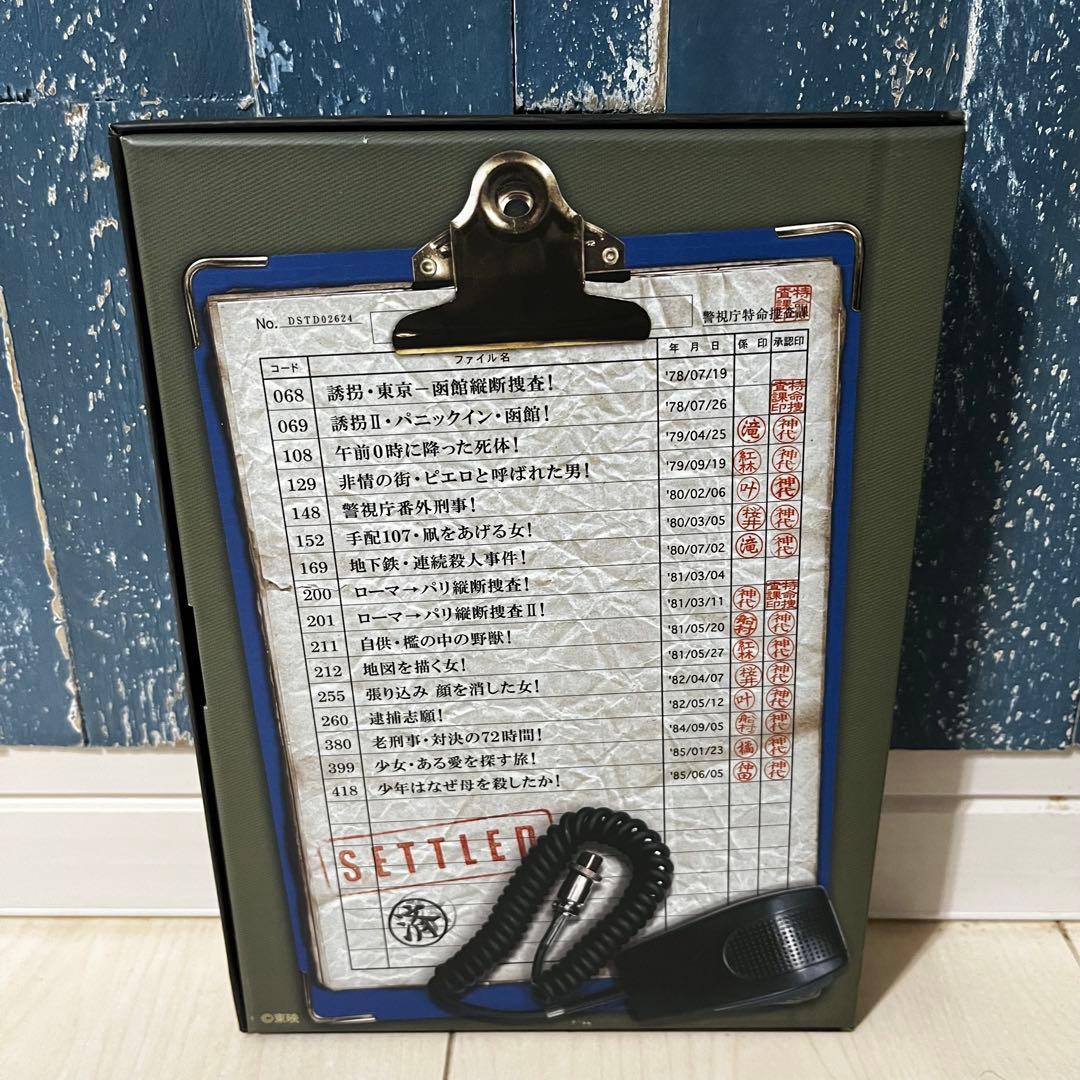 No. DSTD02624
警視庁特命捜査課
特命捜査課印
コード ファイル名 年 月 日 係 印 承認印
068 誘拐・東京－函館縦断捜査! '78/07/19
069 誘拐Ⅱ・パニックイン・函館! '78/07/26 特命捜査課印
108 午前0時に降った死体! '79/04/25 滝 神代
129 非情の街・ピエロと呼ばれた男! '79/09/19 紅林 神代
148 警視庁番外刑事! '80/02/06 叶 神代
152 手配107・凧をあげる女! '80/03/05 桜井 神代
169 地下鉄・連続殺人事件! '80/07/02 滝 神代
200 ローマ→パリ縦断捜査! '81/03/04
201 ローマ→パリ縦断捜査Ⅱ! '81/03/11 神代 特命捜査課印
211 自供・檻の中の野獣! '81/05/20 船村 神代
212 地図を描く女! '81/05/27 紅林 神代
255 張り込み 顔を消した女! '82/04/07 桜井 神代
260 逮捕志願! '82/05/12 叶 神代
380 老刑事・対決の72時間! '84/09/05 船村 神代
399 少女・ある愛を探す旅! '85/01/23 橘 神代
418 少年はなぜ母を殺したか! '85/06/05 仲田 神代
SETTLED
済
©東映